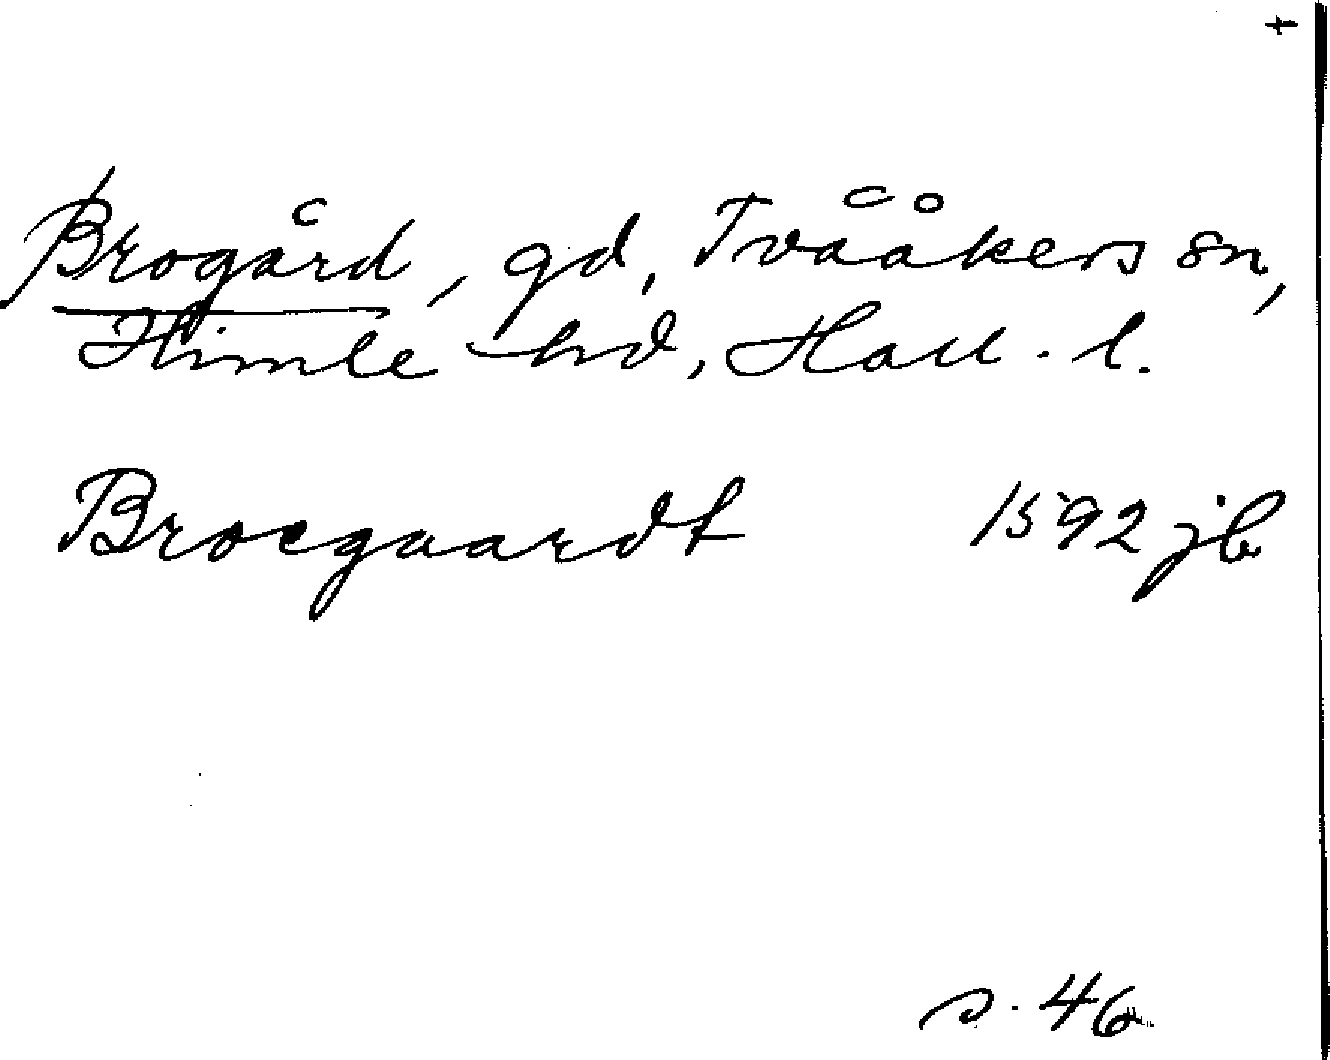 Brogård, gd, Tvååkers sn,
Himle hd, Hall. l.
Broegaardt 1592 jb
s. 46